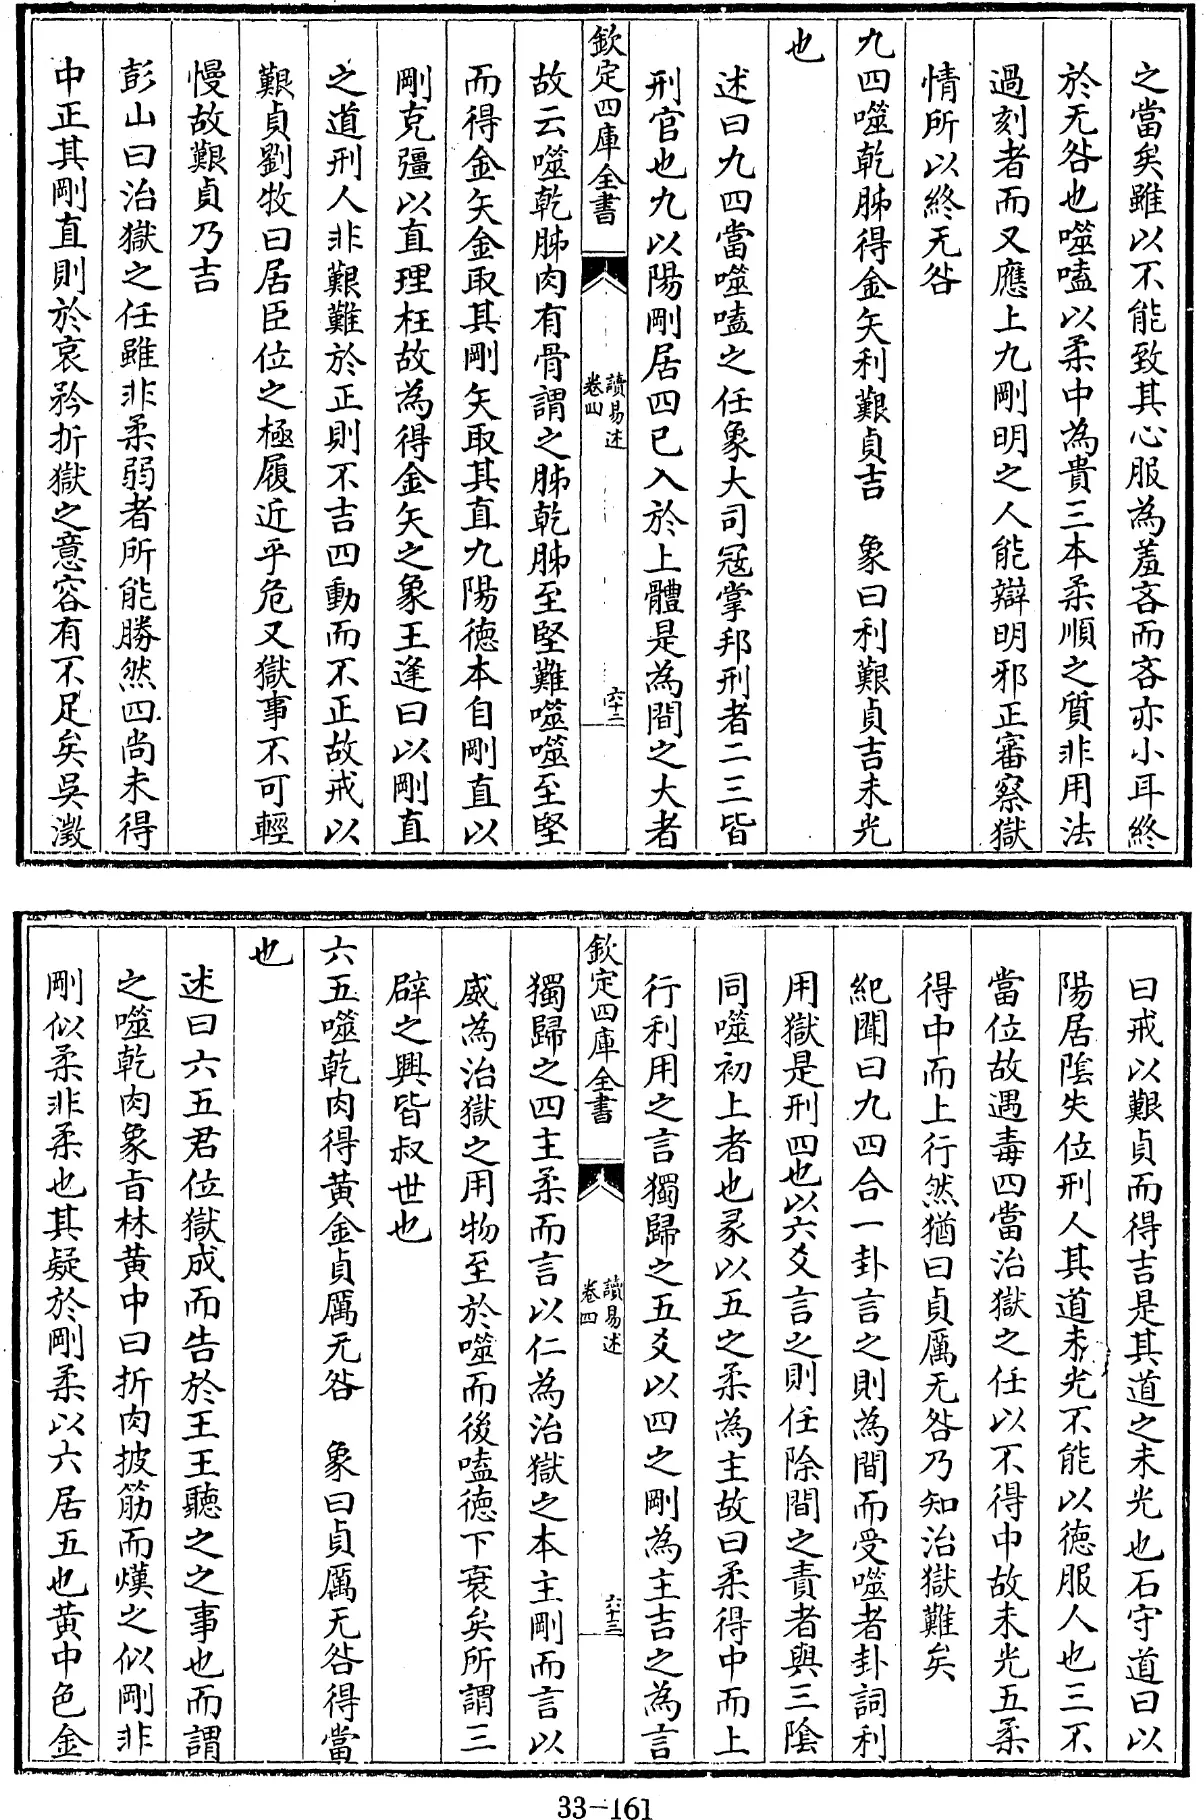 之當矣雖以不能致其心服為羞吝而吝亦小耳終
於无咎也噬嗑以柔中為貴三本柔順之質非用法
過刻者而又應上九剛明之人能辯明邪正審察獄
情所以終无咎
九四噬乾胏得金矢利艱貞吉　象曰利艱貞吉未光
也
述曰九四當噬嗑之任象大司宼掌邦刑者二三皆
刑官也九以陽剛居四已入於上體是為間之大者
欽定四庫全書
讀易述
卷四
六十二
故云噬乾胏肉有骨謂之胏乾胏至堅難噬噬至堅
而得金矢金取其剛矢取其直九陽徳本自剛直以
剛克彊以直理枉故為得金矢之象王逢曰以剛直
之道刑人非艱難於正則不吉四動而不正故戒以
艱貞劉牧曰居臣位之極履近乎危又獄事不可輕
慢故艱貞乃吉
彭山曰治獄之任雖非柔弱者所能勝然四尚未得
中正其剛直則於哀矜折獄之意容有不足矣吳澂
曰戒以艱貞而得吉是其道之未光也石守道曰以
陽居隂失位刑人其道未光不能以徳服人也三不
當位故遇毒四當治獄之任以不得中故未光五柔
得中而上行然猶曰貞厲无咎乃知治獄難矣
紀聞曰九四合一卦言之則為間而受噬者卦詞利
用獄是刑四也以六爻言之則任除間之責者與三隂
同噬初上者也彖以五之柔為主故曰柔得中而上
行利用之言獨歸之五爻以四之剛為主吉之為言
欽定四庫全書
讀易述
卷四
六十三
獨歸之四主柔而言以仁為治獄之本主剛而言以
威為治獄之用物至於噬而後嗑徳下衰矣所謂三
辟之興皆叔世也
六五噬乾肉得黄金貞厲无咎　象曰貞厲无咎得當
也
述曰六五君位獄成而告於王王聽之之事也而謂
之噬乾肉象㫖林黄中曰折肉披筋而熯之似剛非
剛似柔非柔也其疑於剛柔以六居五也黄中色金
33-161